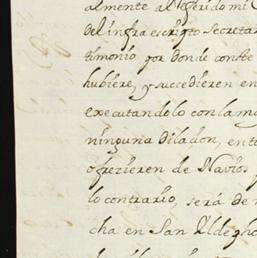 almente al referido mi C
del infra escripto secretar
timonio por donde conste
hubiere, y succedieren en
executandolo con la m
ninguna dilacion, ent
ofrezieren de Navios
lo contrario, será de
cha en San Ildepho